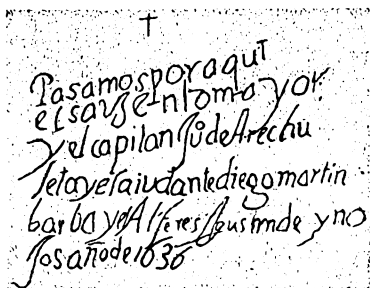 ✝
Pasamos por aqui
el sarjento mayor
y el capitan Ju de Arechu
leta y el aiudante diego martin
barba y el Alferes Agustin de yno
jos año de 1636